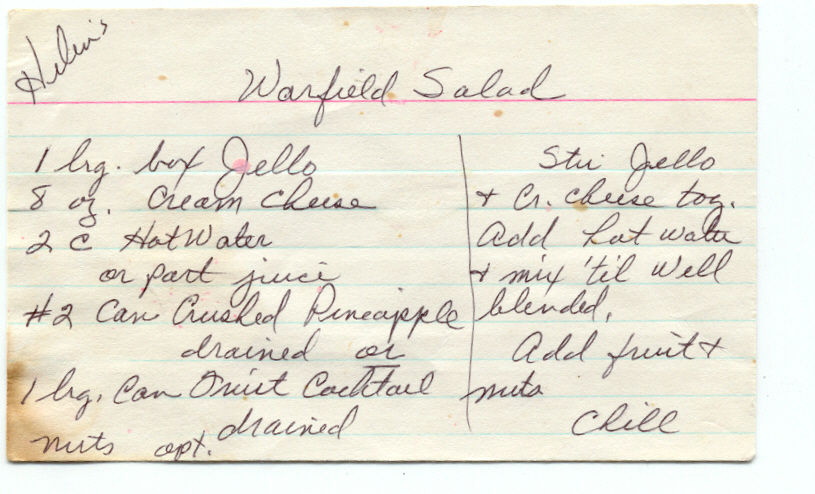 Helen's
Warfield Salad
1 lrg. box Jello
8 oz. Cream Cheese
2 C Hot Water
or part juice
#2 Can Crushed Pineapple
drained or
1 lrg. Can Fruit Cocktail
drained
nuts opt.
Stir Jello
+ Cr. cheese tog.
Add hot water
+ mix 'til well
blended.
Add fruit +
nuts
Chill